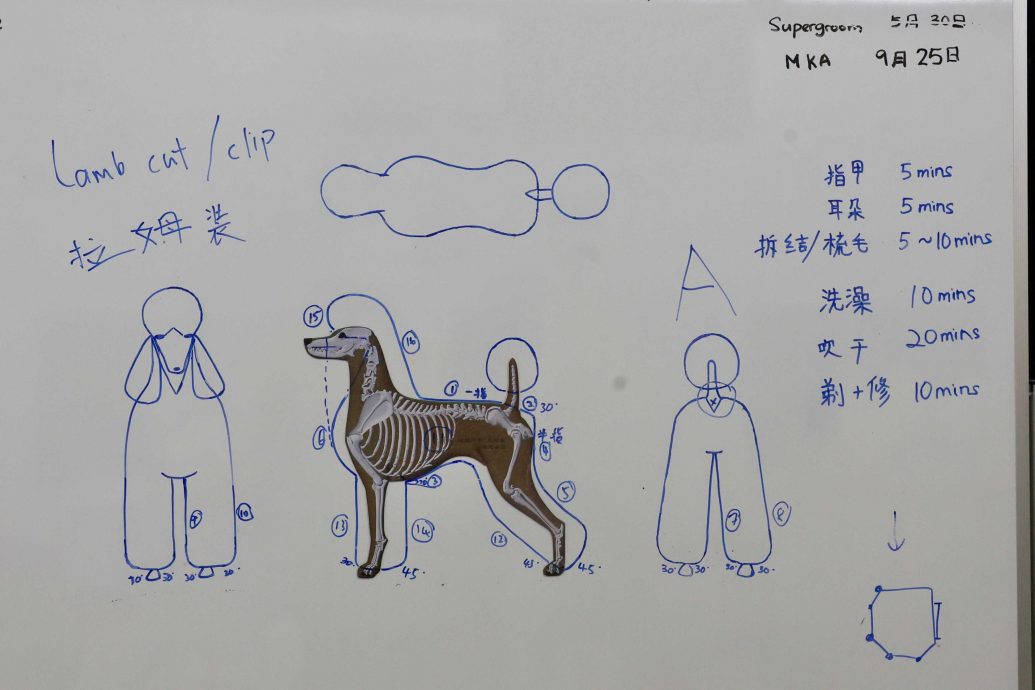 Supergroom 5月30日
MKA 9月25日
Lamb cut/clip
拉姆装
指甲 5 mins
耳朵 5 mins
拆结/梳毛 5~10mins
洗澡 10 mins
吹干 20 mins
剃+修 10 mins
A
15
16
1 一指
2 30°
半指
4
6
3
5
13
14
12
30°
45°
45°
45°
9
10
30° 30° 30° 30°
7
8
30° 30° 30° 30°